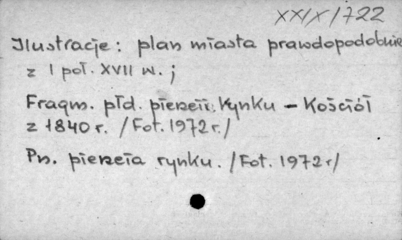 XXIX/722
Ilustracje: plan miasta prawdopodobnie
z I poł. XVII w.;
Fragm. płd. pierzeii. Rynku – Kościół
z 1840 r. /Fot. 1972 r./
Pn. pierzeia rynku. /Fot. 1972 r/